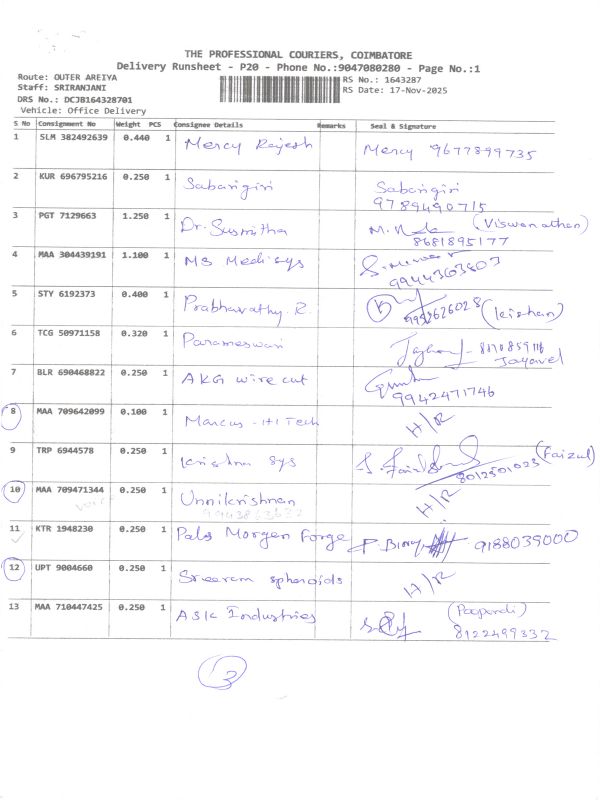 THE PROFESSIONAL COURIERS, COIMBATORE
Delivery Runsheet - P20 - Phone No.:9047080280 - Page No.:1
Route: OUTER AREIYA
RS No.: 1643287
Staff: SRIRANJANI
RS Date: 17-Nov-2025
DRS No.: DCJB164328701
Vehicle: Office Delivery
S No Consignment No Weight PCS Consignee Details Remarks Seal & Signature
1 SLM 382492639 0.440 1 Mercy Rajesh Mercy 9677899735
2 KUR 696795216 0.250 1 Sabarigiri Sabarigiri
9789490715
3 PGT 7129663 1.250 1 Dr. Susmitha (Viswanathan)
8681895177
4 MAA 304439191 1.100 1 MS Medisys
9944363803
5 STY 6192373 0.400 1 Prabhavathy. R. 9952626028 (kishan)
6 TCG 50971158 0.320 1 Parameswari
Jayavel
7 BLR 690468822 0.250 1 AKG wire cut
9942471746
8 MAA 709642099 0.100 1 Marcus - HI Tech H/R
9 TRP 6944578 0.250 1 Krishna sys (Faizul)
8012501023
10 MAA 709471344 0.250 1 Unnikrishnan H/R
11 KTR 1948230 0.250 1 Pals Morgen Forge 9188039000
12 UPT 9004660 0.250 1 Sreeram spheroids H/R
13 MAA 710447425 0.250 1 ASK Industries
8122499332
3